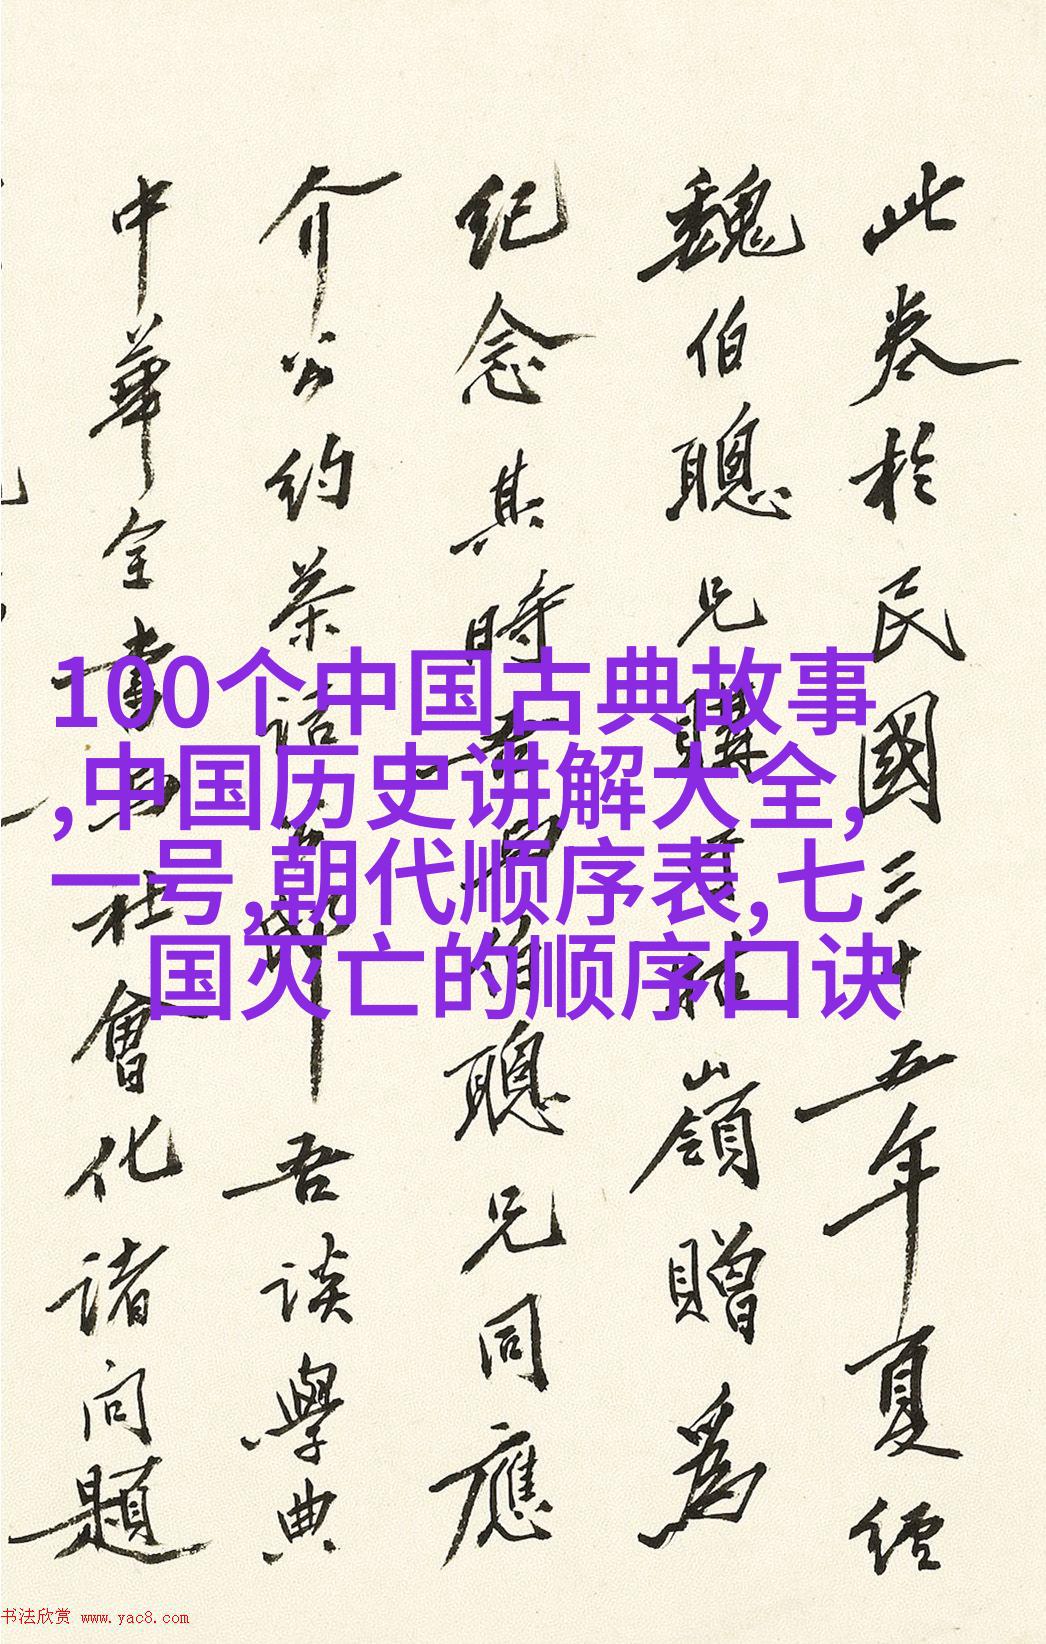 此卷於民國三十五年夏經
魏伯聰兄購于牯嶺贈為
紀念其時吾與伯聰兄同應
介公約茶話吾談學典
中華全書與社會化諸問題
100个中国古典故事
,中国历史讲解大全,
一号,朝代顺序表,七
国灭亡的顺序口诀
书法欣赏 www.yac8.com